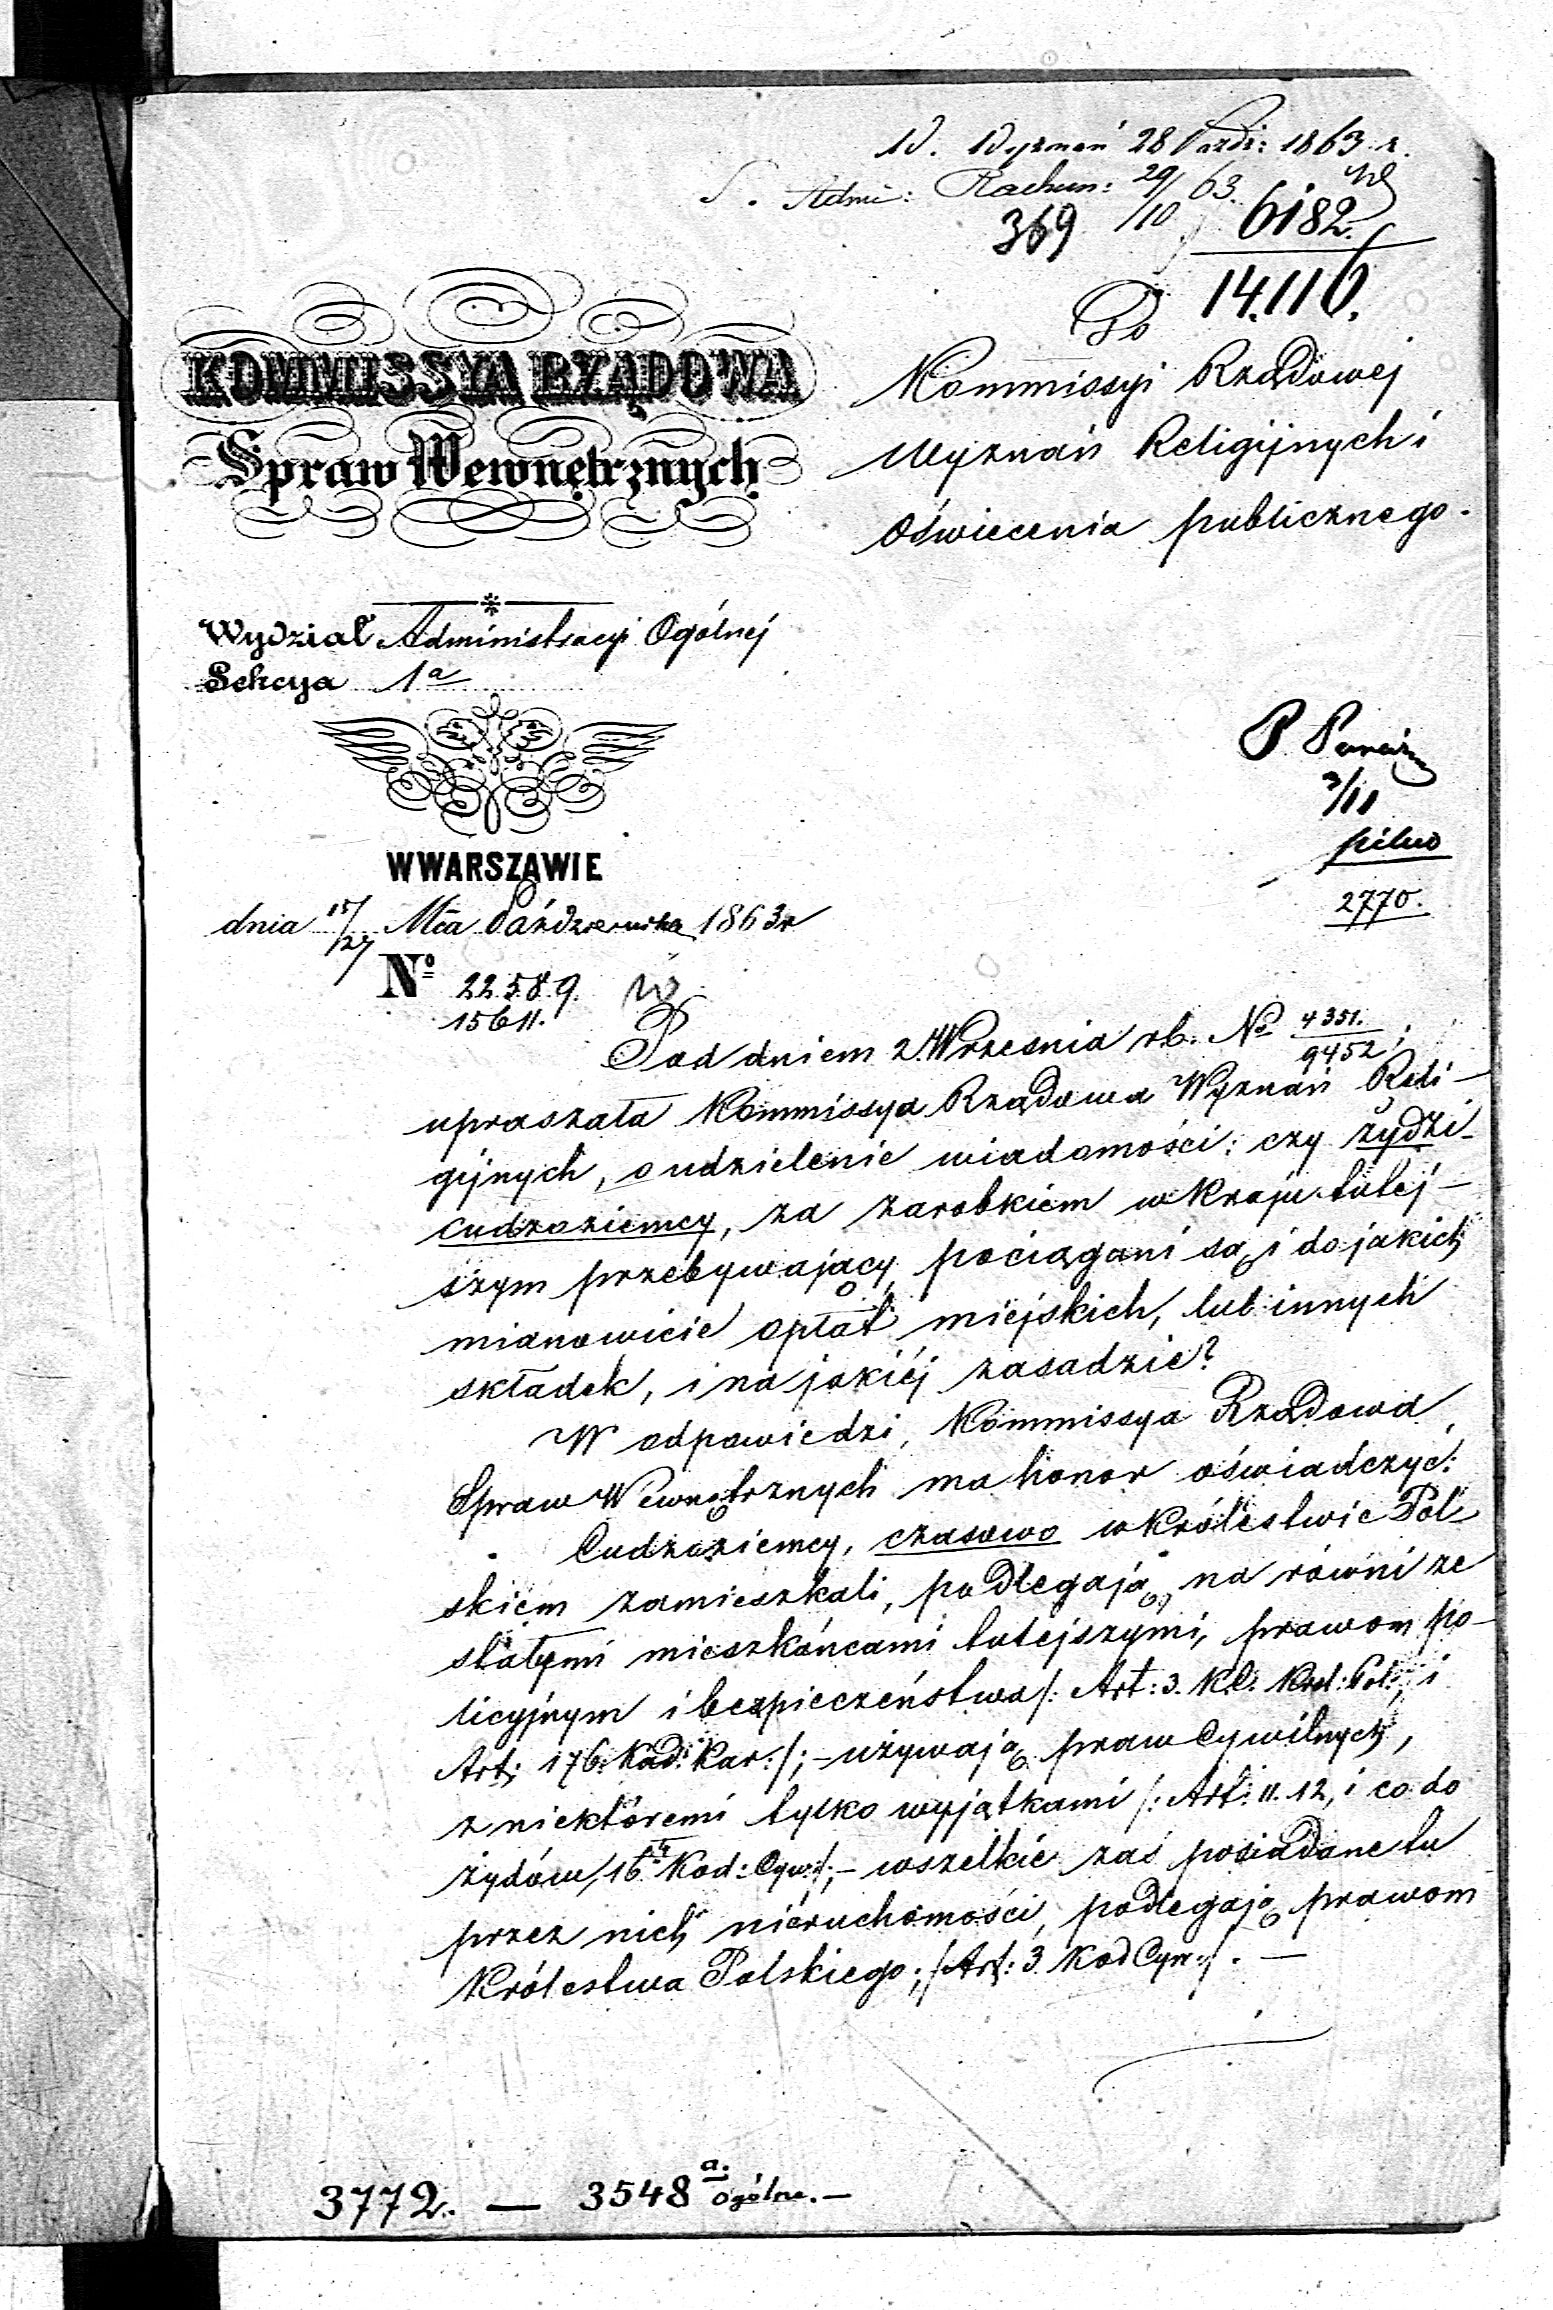 W. Wyznań 28 Paźdz: 1863 r.
S. Admi: Rachun: 29/10 63.
369 6182.
14.116.
Do
KOMMISSYA RZĄDOWA
Spraw Wewnętrznych
Kommissyi Rządowej
Wyznań Religijnych i
Oświecenia publicznego.
Wydział Administracyi Ogólnej
Sekcya 1a
P.
3/11
pilno
2770.
W WARSZAWIE
dnia 15/27 Mca Października 1863 r
No 22589.
15611.
Pod dniem 2 Wrzesnia rb. No 4351./9452;
upraszała Kommissya Rządowa Wyznań Reli-
gijnych, o udzielenie wiadomości: czy żydzi-
cudzoziemcy, za zarobkiem w Kraju tutej-
szym przebywający, pociągani są, i do jakich
mianowicie opłat miejskich, lub innych
składek, i na jakiéj zasadzie?
W odpowiedzi, Kommissya Rządowa
Spraw Wewnętrznych ma honor oświadczyć:
Cudzoziemcy, czasowo w Królestwie Pol-
skiem zamieszkali, podlegają, na równi ze
stałymi mieszkańcami tutejszymi, prawom po-
licyjnym i bezpieczeństwa /: Art: 3. K.C. Król: Pol:, i
Art: 176. Kod: Kar: /; - używają praw Cywilnych,
z niektóremi tylko wyjątkami /: Art: 11. 12, i co do
żydów, 16 Kod: Cyw: /; - wszelkie zaś posiadane tu
przez nich nieruchomości, podlegają prawom
Królestwa Polskiego; /: Art: 3 Kod Cyw: /. -
3772. — 3548 a. ogólne. —